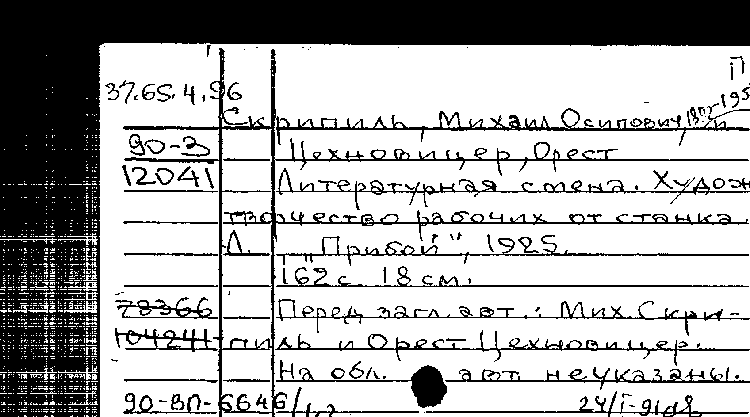 П
37.65.4.96
Скрипиль, Михаил Осипович, и
90-3
Цехновицер, Орест
12041
Литературная смена. Худож
творчество рабочих от станка
Л. "Прибой", 1925.
162 с. 18 см.
78366
Перед загл. авт.: Мих. Скри-
104241
пиль и Орест Цехновицер.
На обл. авт. не указаны.
90-ВП-6646/